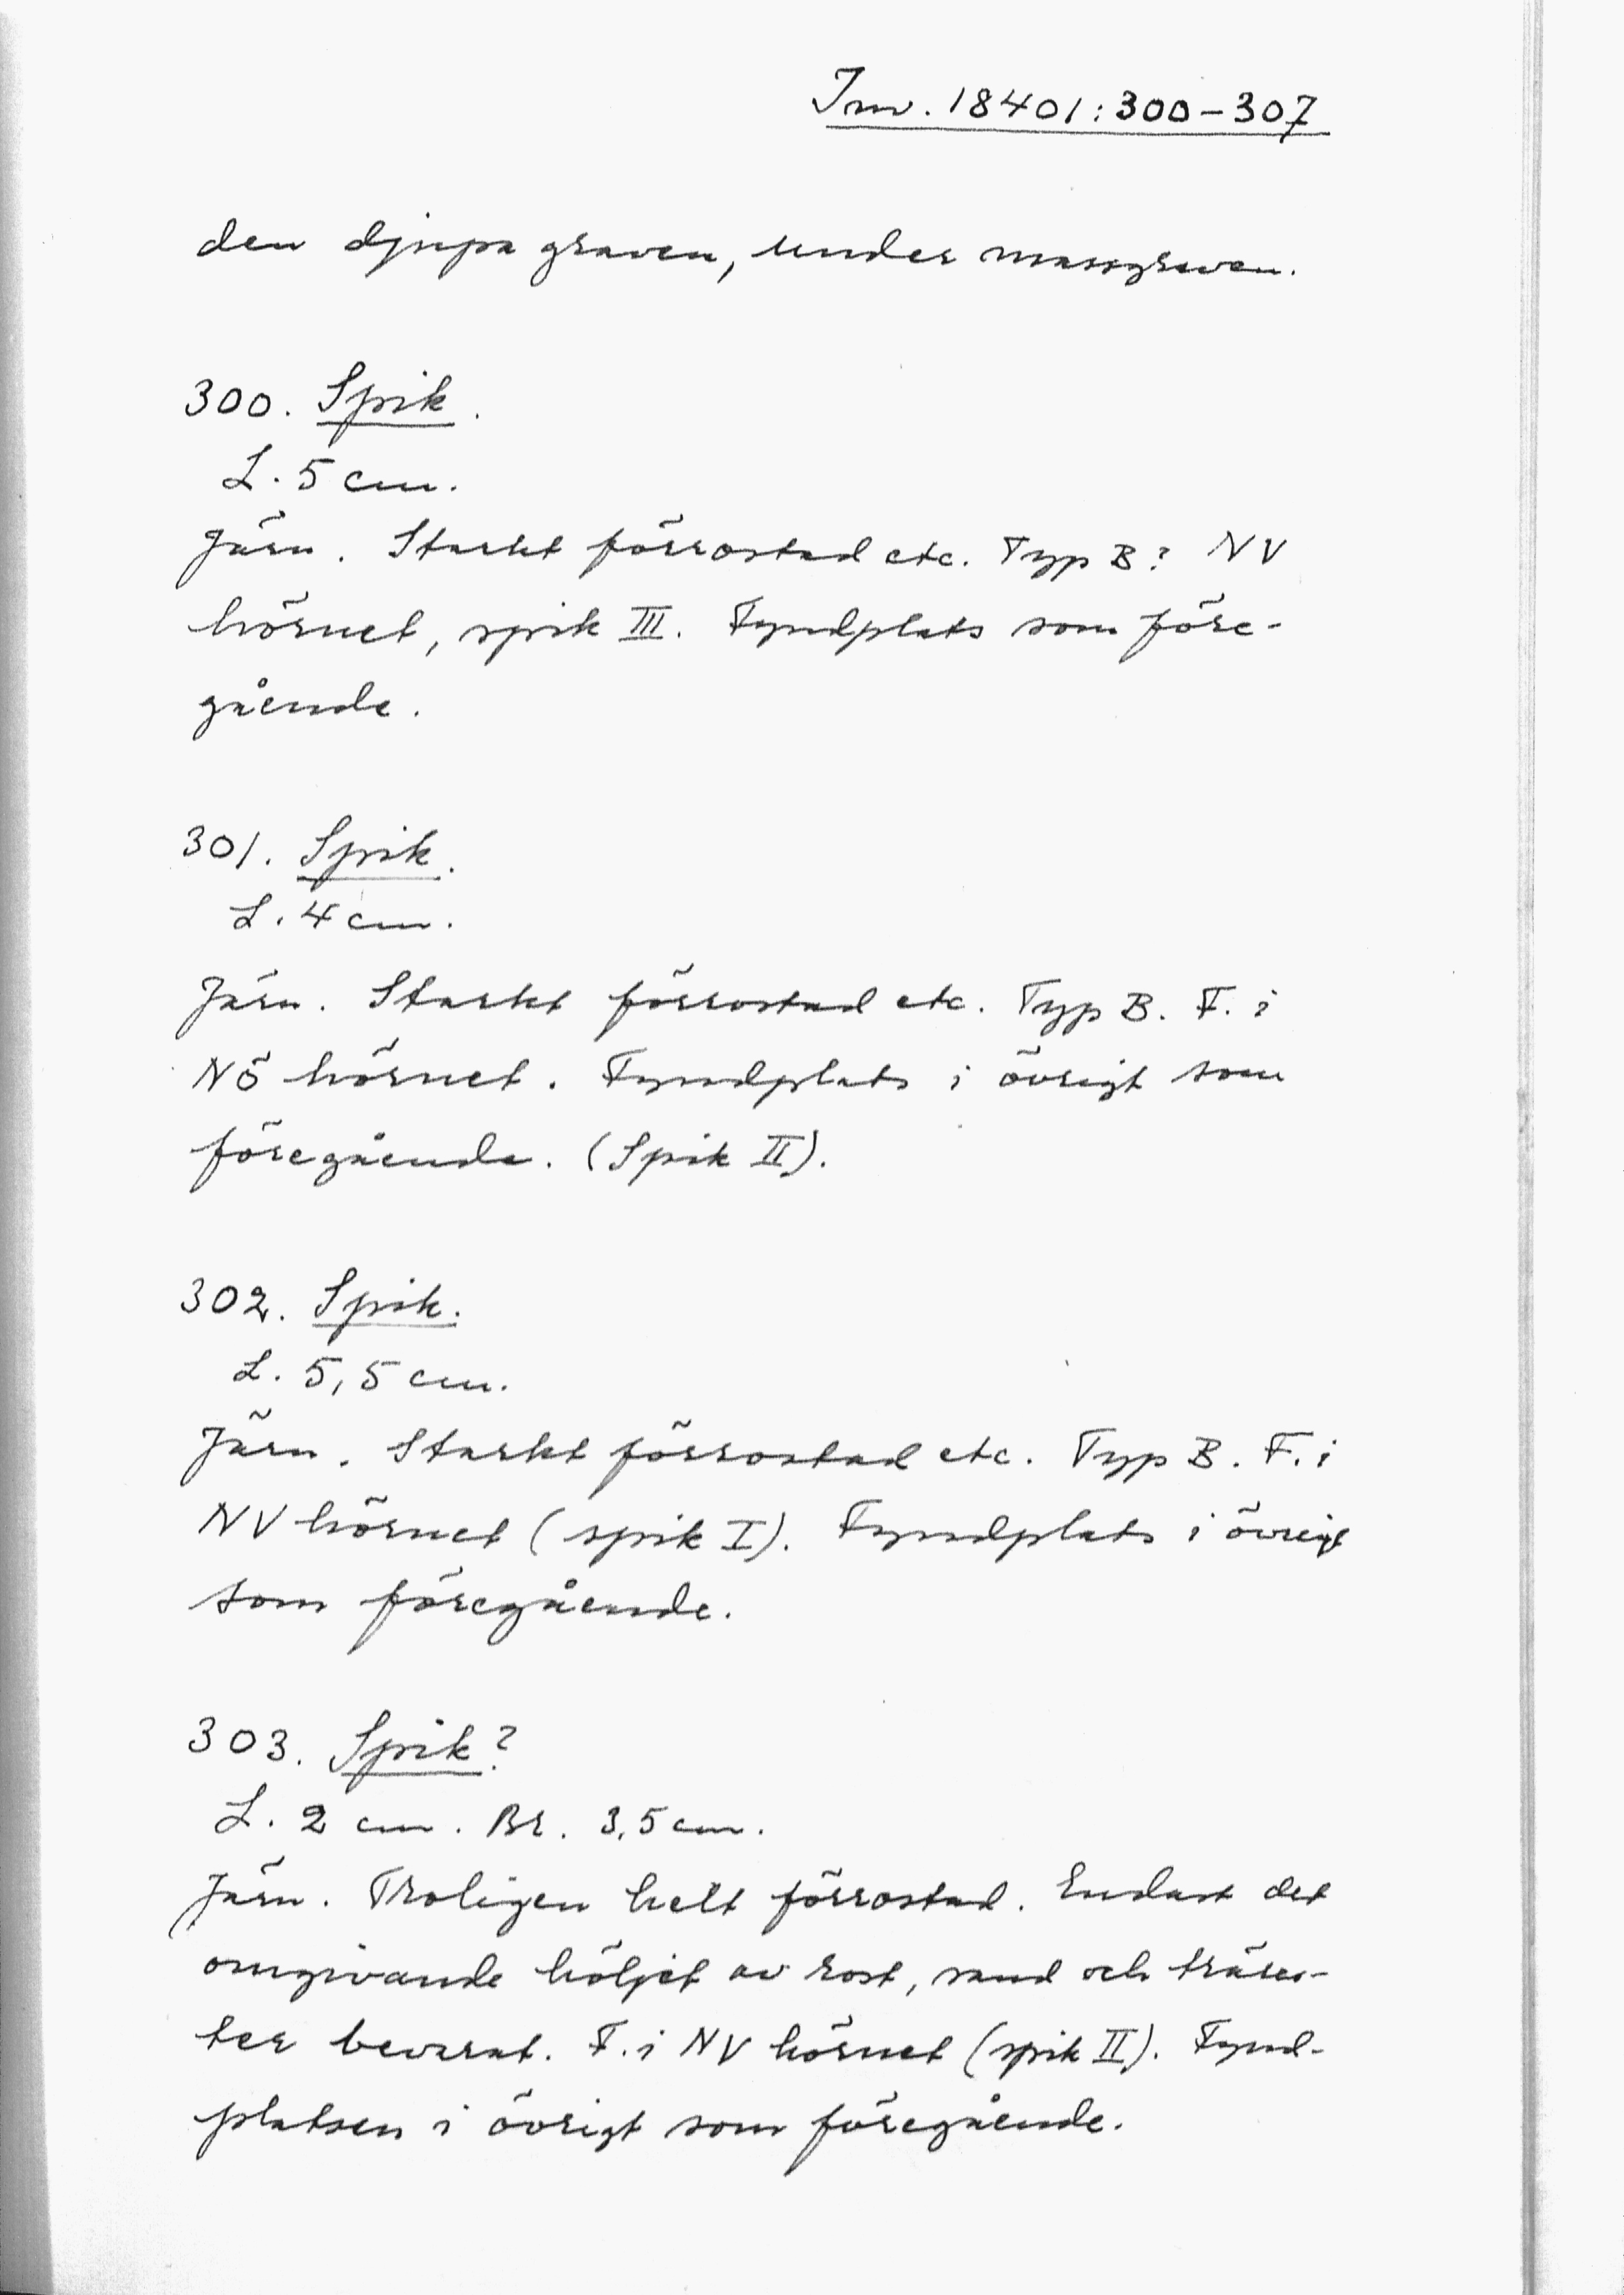 Inv. 18401:300-307
den djupa graven, under massgraven.
300. Spik.
L. 5 cm.
Järn. Starkt förrostad etc. Typ B? NV
hörnet, spik III. Fyndplats som före-
gående.
301. Spik.
L. 4 cm.
Järn. Starkt förrostad etc. Typ B. F. i
NÖ hörnet. Fyndplats i övrigt som
föregående. (Spik II).
302. Spik.
L. 5,5 cm.
Järn. Starkt förrostad etc. Typ B. F. i
NV hörnet (spik I). Fyndplats i övrigt
som föregående.
303. Spik?
L. 2 cm. Br. 3,5 cm.
Järn. Troligen helt förrostad. Endast det
omgivande höljet av rost, sand och träres-
ter bevarat. F. i NV hörnet (spik II). Fynd-
platsen i övrigt som föregående.